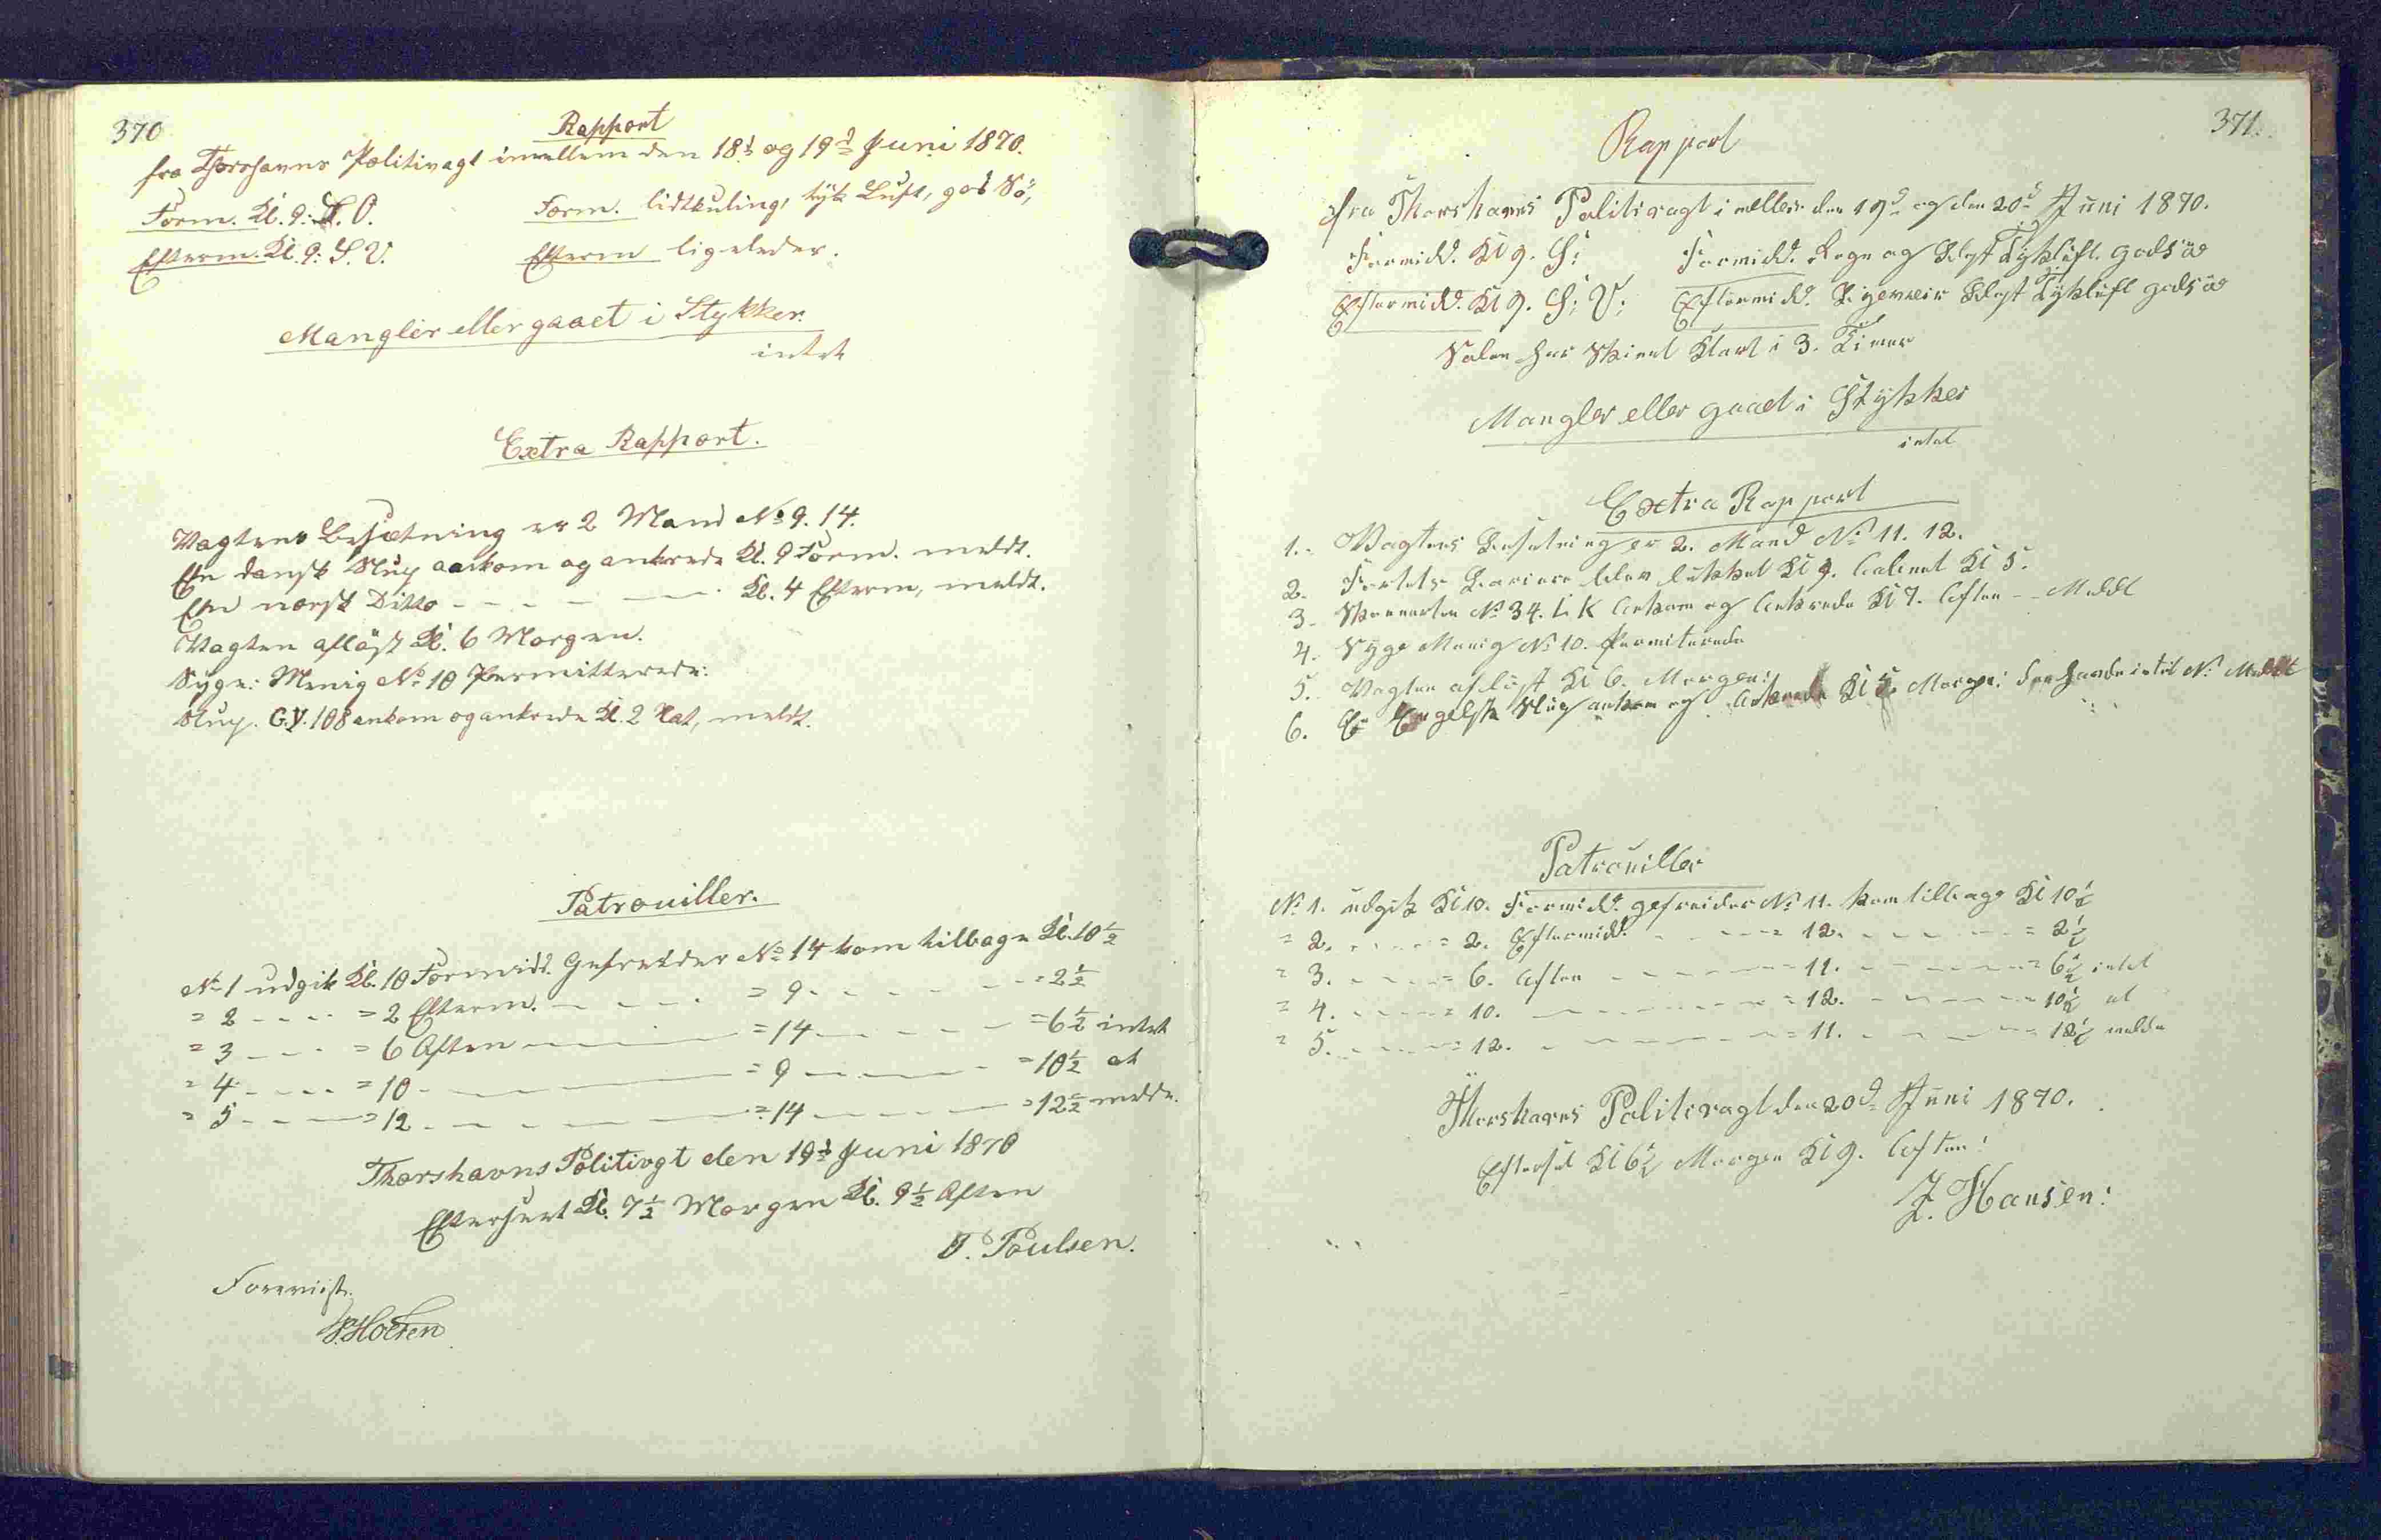 370
Rapport
fra Thorshavns Politivagt imellem den 18d og 19d Juni 1870.
Form. Kl. 9: S. O. Form. lidt kuling, tyk Luft, god Sö,
Efterm. Kl. 9: S. V. Efterm ligeledes.
Mangler eller gaaet i Stykker.
intet
Extra Rapport.
Vagtens Besætning er 2 Mand No 9. 14.
En dansk Slup ankom og ankrede Kl. 9 Form. meldt.
En norsk Ditto - - - - Kl. 4 Efterm, meldt.
Vagten aflöst Kl. 6 Morgen.
Syge: Menig No 10 Permitterede:
Slup. G.V. 108 ankom og ankrede Kl. 2 Nat, meldt.
Patrouiller.
No 1 udgik Kl. 10 Formidd. Gefreider No 14 kom tilbage Kl. 10 1/2
= 2 - - - = 2 Efterm. - - - = 9 - - - - = 2 1/2
= 3 - - - = 6 Aften - - - = 14 - - - - = 6 1/2 intet
= 4 - - - = 10 - - - = 9 - - - - = 10 1/2 at
= 5 - - - = 12 - - - = 14 - - - - = 12 1/2 melde.
Thorshavns Politivgt den 19d Juni 1870
Efterseet Kl. 7 1/2 Morgen Kl. 9 1/2 Aften
P. Poulsen.
Foreviist.
371.
Rapport
fra Thorshavns Politivagt i mellem den 19d og den 20d Juni 1870.
Formidd. Kl 9. S: Formidd. Regn og Blest Tyk luft. god söe
Eftermidd. Kl 9. S: V: Eftermidd. Ligeveir Blest Tyk luft god söe
Solen har Skinet Klart i 3. Timer
Mangler eller gaaet i Stykker
intet
Extra Rapport
1. Vagtens Besætning er 2. Mand No 11. 12.
2. Fortets Bariere blev lukket Kl 9. Aabnet Kl 5.
3. Skonnerten No 34. L K Ankom og Ankrede Kl 7. Aften - - Meldt
4. Syge Menig No 10. Permiterede
5. Vagten aflöst Kl 6. Morgen:
6. En Engelsk Slup ankom og Ankrede Kl 5. Morgen: den havde intet No Meldt
Patrouiller
No 1. udgik Kl 10. Formidd. gefreider No 11. kom tilbage Kl 10 1/2
= 2. - - - = 2. Eftermidd. - - - = 12. - - - - = 2 1/2
= 3. - - - = 6. Aften - - - = 11. - - - - = 6 1/2 intet
= 4. - - - = 10. - - - = 12. - - - - = 10 1/2 at
= 5. - - - = 12. - - - = 11. - - - - = 12 1/2 melde
Thorshavns Politivagt den 20d Juni 1870.
Efterset Kl 6 1/2 Morgen Kl 9. Aften:
J. Hansen: